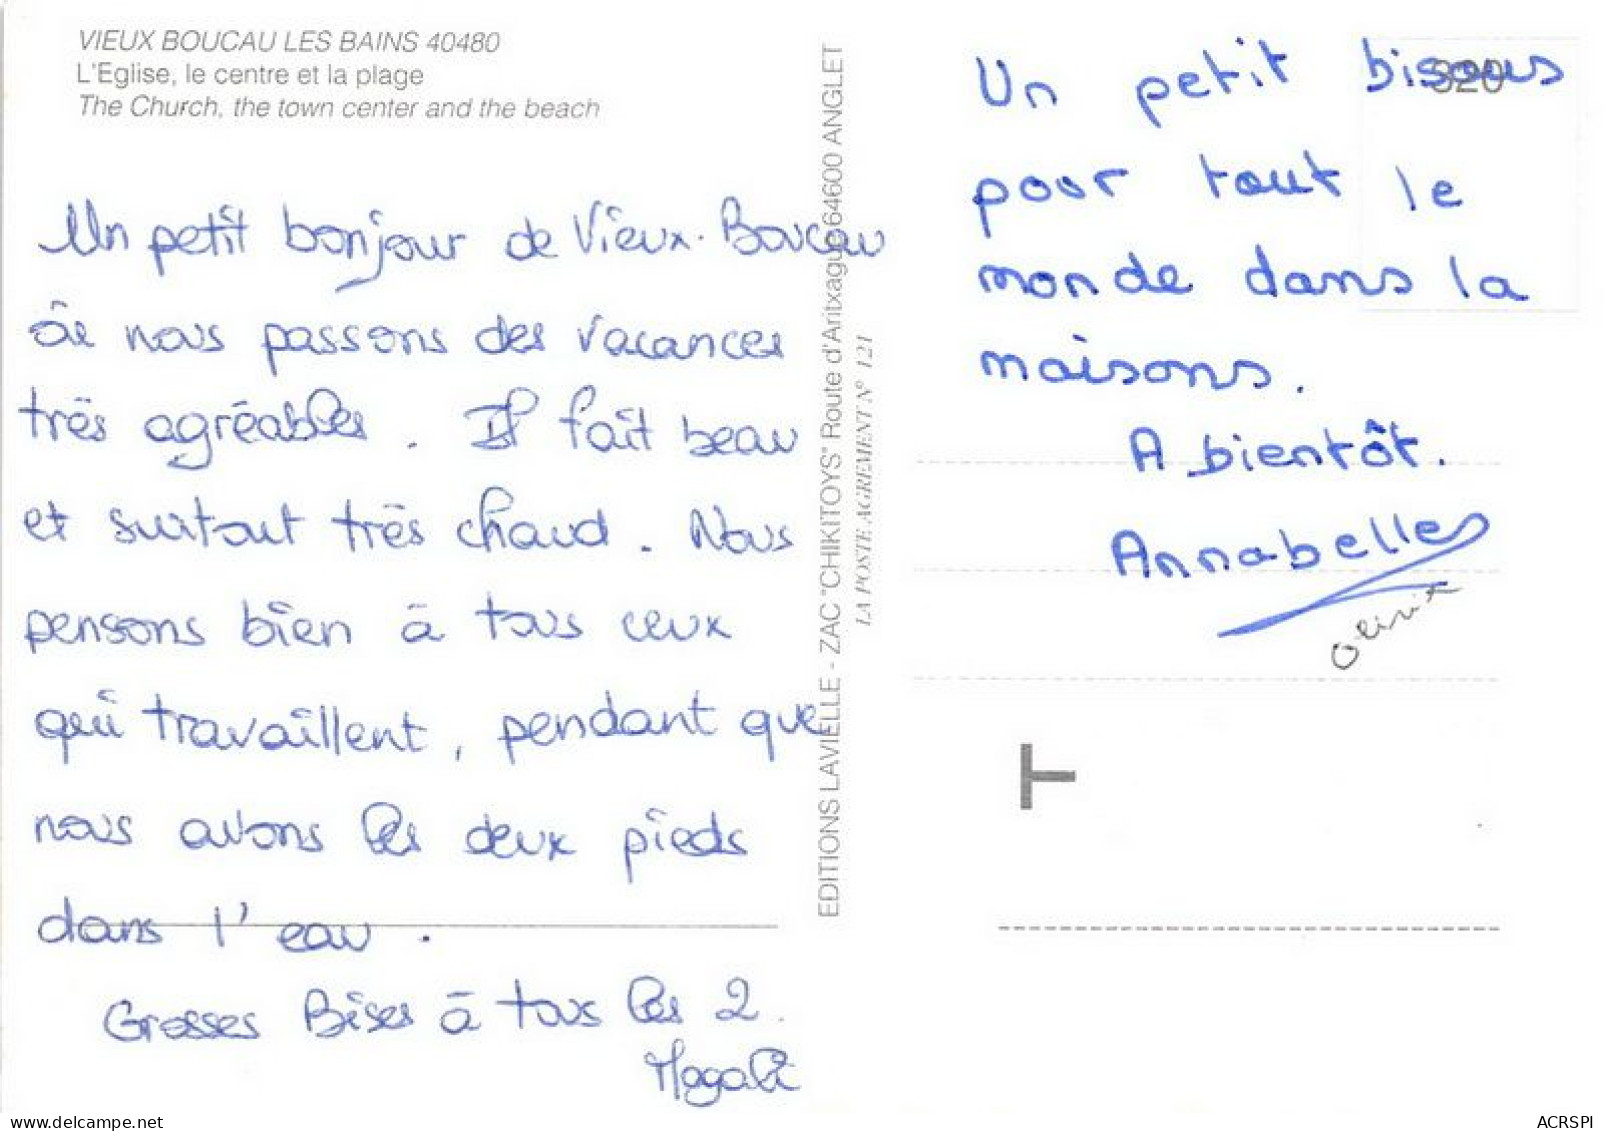 VIEUX BOUCAU LES BAINS 40480
L'Eglise, le centre et la plage
The Church, the town center and the beach
Un petit bonjour de Vieux-Boucau
où nous passons des vacances
très agréables. Il fait beau
et surtout très chaud. Nous
pensons bien à tous ceux
qui travaillent, pendant que
nous avons les deux pieds
dans l'eau.
Grosses Bises à tous les 2.
Magali
EDITIONS LAVIELLE - ZAC "CHIKITOYS" Route d'Aritxague 64600 ANGLET
LA POSTE AGREMENT N° 121
320
Un petit bisous
pour tout le
monde dans la
maisons.
A bientôt.
Annabelle
T
www.delcampe.net
ACRSPI